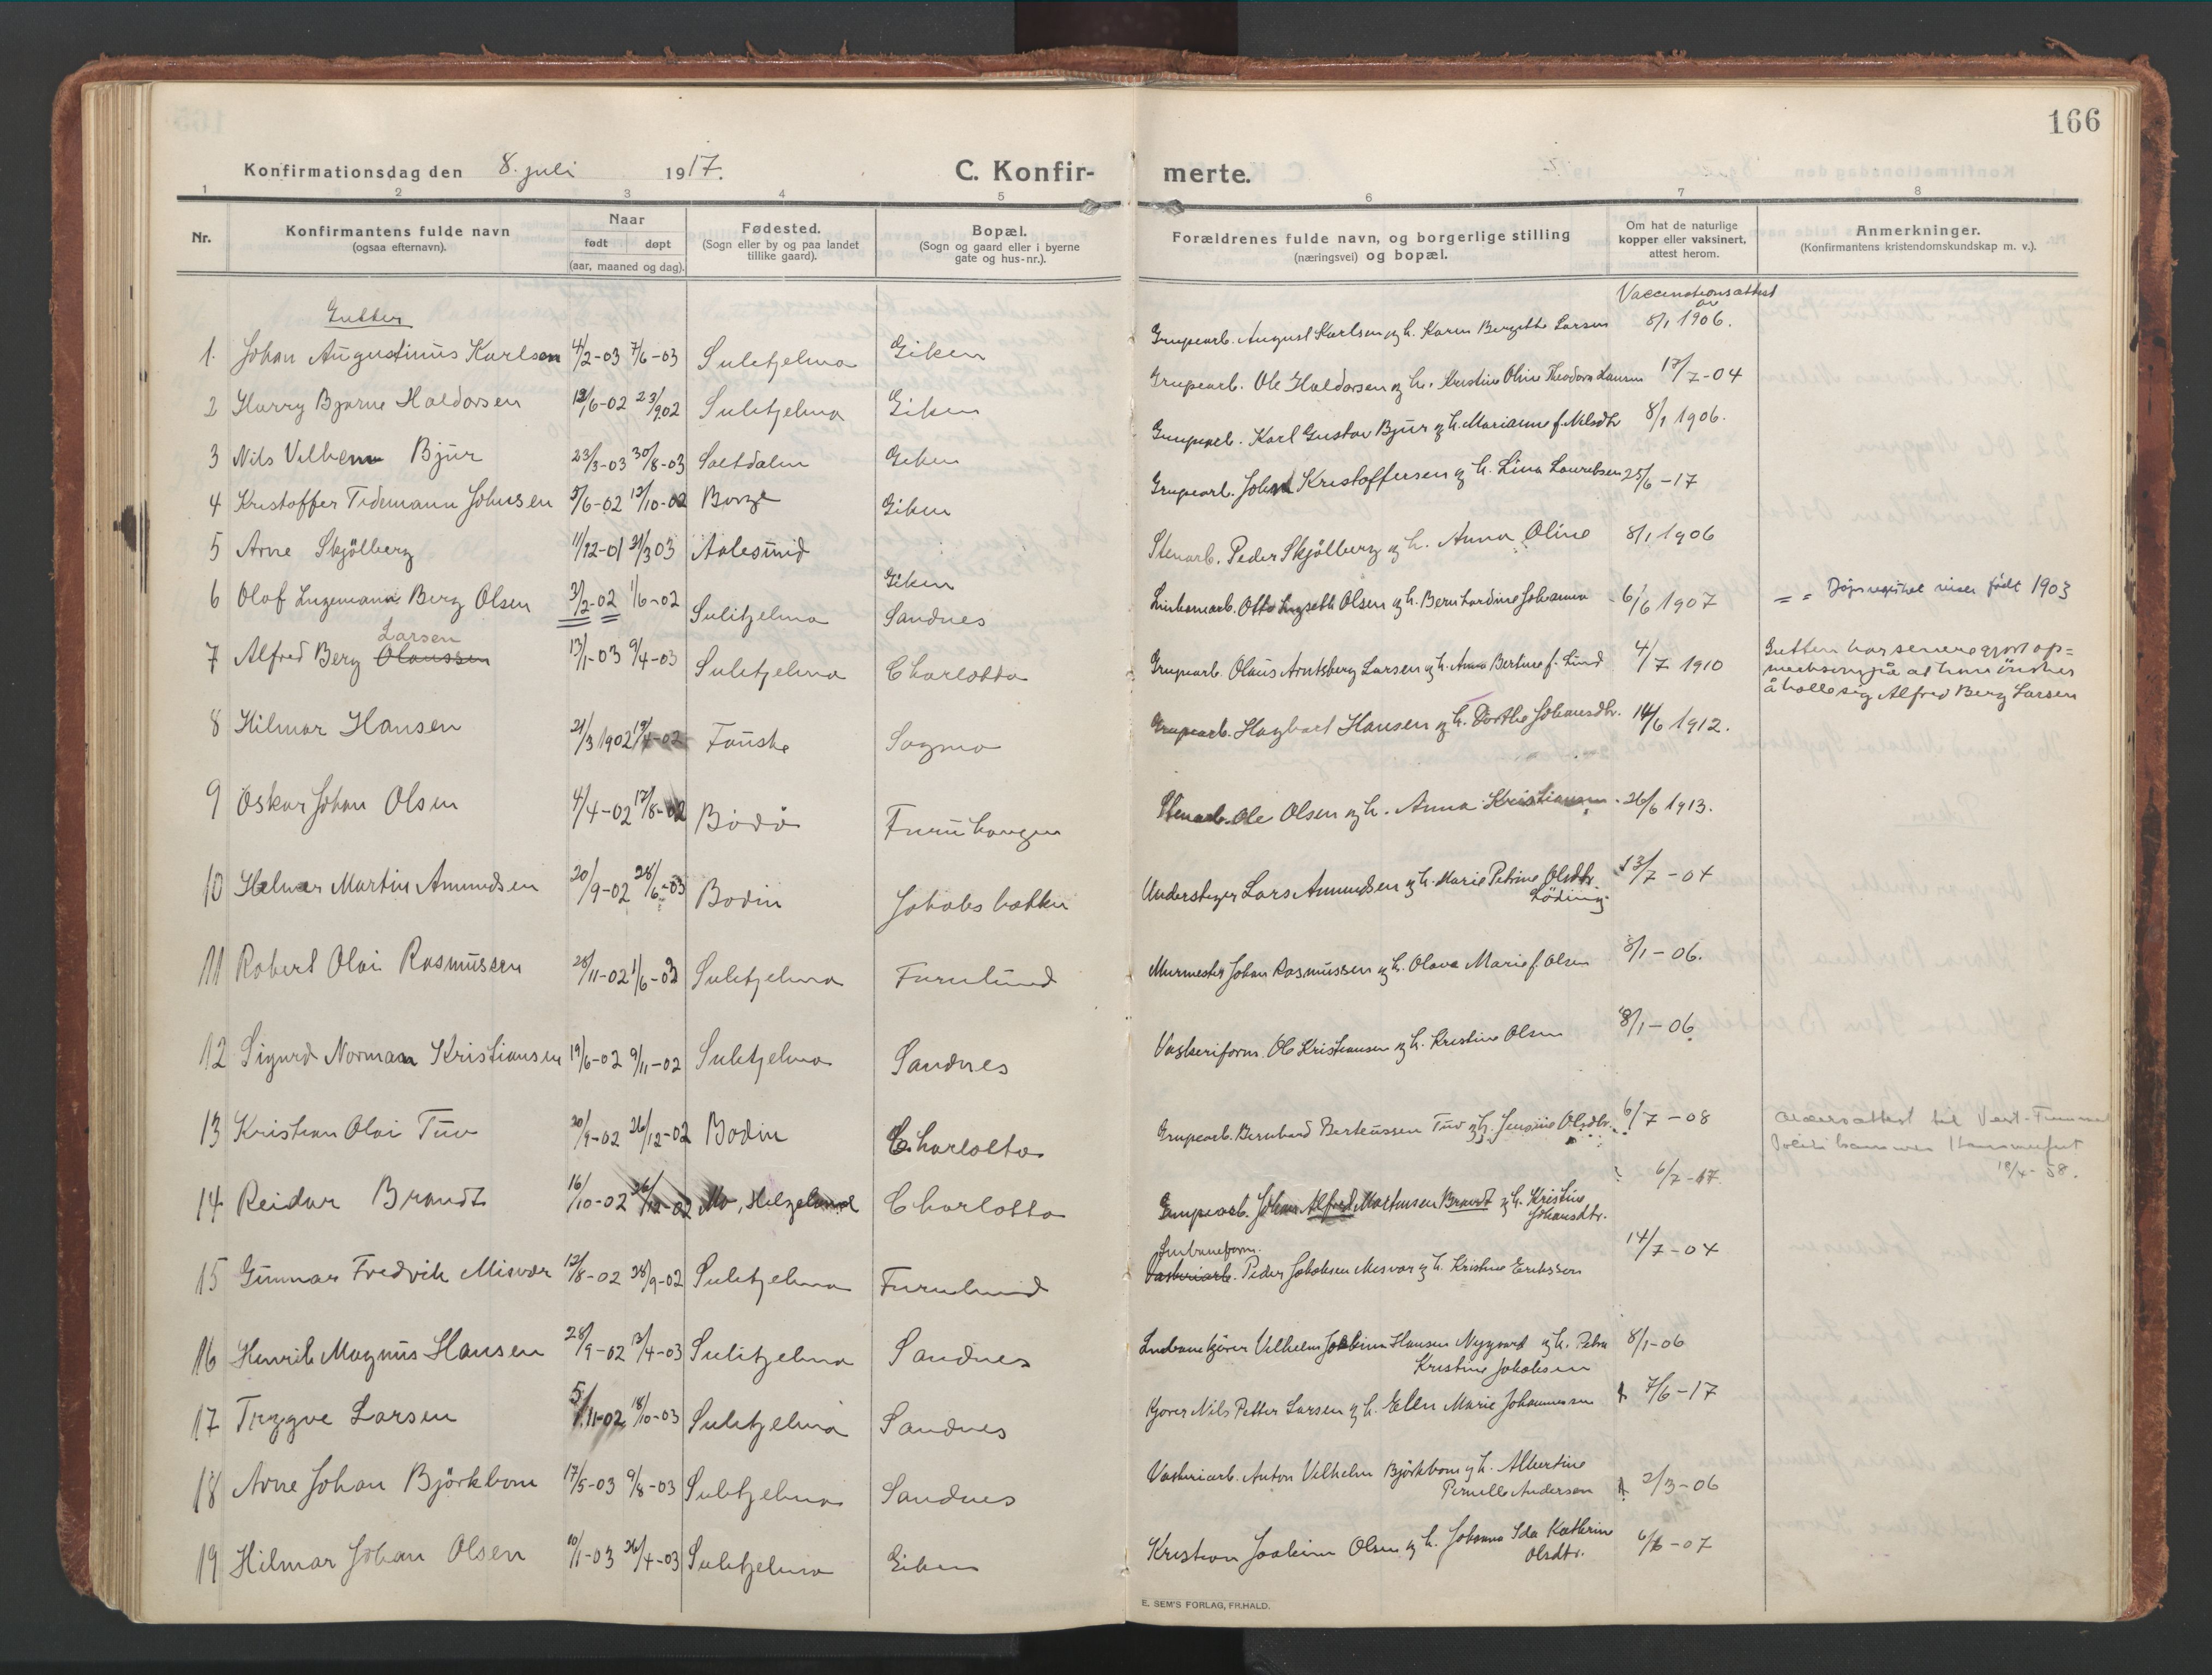 166
Konfirmationsdag den 8. juli 1917.
C. Konfir-
merte.
1 2 3 4 5 6 7 8
Nr.
Konfirmantens fulde navn
(ogsaa efternavn).
Naar
født døpt
(aar, maaned og dag).
Fødested.
(Sogn eller by og paa landet
tillike gaard).
Bopæl.
(Sogn og gaard eller i byerne
gate og hus-nr.).
Forældrenes fulde navn, og borgerlige stilling
(næringsvei) og bopæl.
Om hat de naturlige
kopper eller vaksinert,
attest herom.
Anmerkninger.
(Konfirmantens kristendomskundskap m. v.).
Gutter
Vaccinationsattest
av
1. Johan Augustinus Karlsen 4/2-03 7/6-03 Sulitjelma Giken Grupearb. August Karlsen og h. Karen Bergitte Larsen 8/1 1906.
2 Harry Bjarne Haldorsen 12/6-02 23/9 02 Sulitjelma Giken Grupearb. Ole Haldorsen og h. Kristine Oline Theodora Larsen 17/7-04
3 Nils Vilhelm Bjur 23/3-03 30/8-03 Saltdalen Giken Grupearb. Karl Gustav Bjur og h. Marianne f. Nilsdtr 8/1 1906.
4 Kristoffer Tidemann Johnsen 5/6-02 12/10-02 Borge Giken Grupearb. John Kristoffersen og h. Lina Lauritsen 25/6-17
5 Arne Skjölberg 11/12-01 31/3 03 Aalesund Giken Stenarb. Peder Skjölberg og h. Anna Oline 8/1 1906
6 Olaf Ingemann Berg Olsen 3/2-02 1/6-02 Sulitjelma Sandnes Linbanearb. Otto Ingseth Olsen og h. Bernhardine Johanna 6/6 1907 = = Døpsregistret viser født 1903
Larsen
7 Alfred Berg Olaussen 13/1-03 9/4-03 Sulitjelma Charlotta Grupearb. Olaus Arntsberg Larsen og h. Anna Bertine f. Lind 4/7 1910 Gutten har senere gjort op=
merksom på at han önsker
å kalle sig Alfred Berg Larsen
8 Hilmar Hansen 21/3 1902 19/4-02 Fauske Sagmo Grupearb. Hagbart Hansen og h. Dorthe Johansdtr. 14/6 1912.
9 Oskar Johan Olsen 4/4-02 17/8-02 Bodö Furuhaugen Stenarb. Ole Olsen og h. Anna Kristiansen 26/6 1913.
10 Helmer Martin Amundsen 20/9-02 28/6-03 Bodin Jakobsbakken Understeiger Lars Amundsen og h. Marie Petrine Olsdtr. 13/7-04
Löding
11 Robert Olai Rasmussen 28/11-02 1/6-03 Sulitjelma Furulund Murmester Johan Rasmussen og h. Olava Marie f. Olsen 8/1-06.
12 Sigurd Norman Kristiansen 19/6-02 9/11-02 Sulitjelma Sandnes Vaskeriform. Ole Kristiansen og h. Kristine Olsen 8/1-06
13 Kristian Olai Tuv 20/9-02 26/12-02 Bodin Charlotta Grupearb. Bernhard Berteussen Tuv og h. Jensine Olsdtr. 6/7-08 Aldersattest til Vest-Finnmark
Politikammer Hammerfest
18/4-58.
14 Reidar Brandt 16/10-02 26/12-02 Mo, Helgeland Charlotta Grupearb. Johan Alfred Martinsen Brandt og h. Kristine 6/7-17
Johansdtr.
Linbaneform.
15 Gunnar Fredrik Misvær 12/8-02 28/9-02 Sulitjelma Furulund Vaskeriarb. Peder Jakobsen Misvær og h. Kristine Eriksen 14/7-04
16 Henrik Magnus Hansen 28/9-02 13/4-03 Sulitjelma Sandnes Linbanekjörer Vilhelm Joakim Hansen Nygaard og h. Petra 8/1-06
Kristine Jakobsen
17 Trygve Larsen 5/11-02 18/10-03 Sulitjelma Sandnes Kjörer Nils Petter Larsen og h. Elen Marie Johannesen 7/6-17
18 Arne Johan Björkbom 17/5-03 9/8-03 Sulitjelma Sandnes Vaskeriarb. Anton Vilhelm Björkbom og h. Albertine
Pernille Andersen 2/3-06
19 Hilmar Johan Olsen 10/1-03 26/4-03 Sulitjelma Giken Kristian Joakim Olsen og h. Johanna Ida Kathrine 6/6-07
Olsdtr.
E. SEM'S FORLAG, FR.HALD.